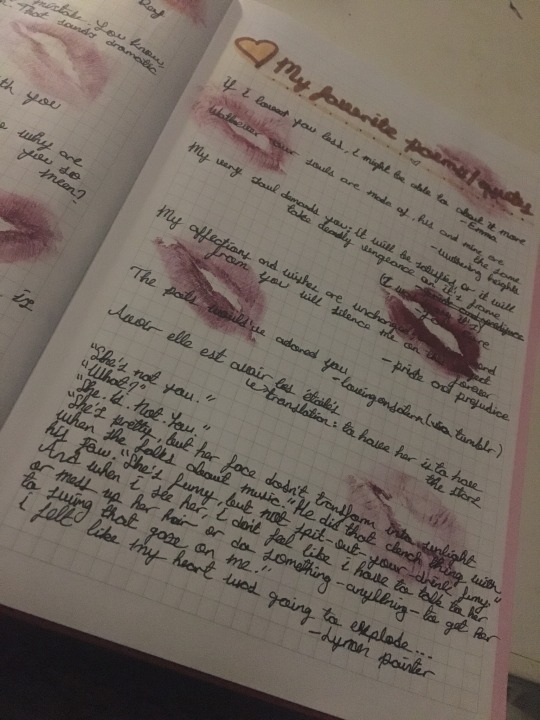 Ray
mistake. You know,
That sounds dramatic
with you
why are
you so
mean?
My favorite poems/quotes
If I loved you less, I might be able to talk about it more
- Emma
Whatever our souls are made of, his and mine are
the same
- Wuthering heights
My very soul demands you: it will be satisfied, or it will
take deadly vengeance on it's frame
My affections and wishes are unchanged,
from you will silence me on
forever
- pride and prejudice
The poets would've adored you
- lovingonsolern (via tumblr)
Avoir elle est avoir les étoiles
translation: to have her is to have
the stars
"She's not you."
"What?"
"She. Is. Not. You."
"She's pretty, but her face doesn't transform into sunlight
when she talks about music." He did that clench thing with
his jaw. "She's funny, but not spit-out your drink funny."
And when i see her, i don't feel like i have to talk to her
or mess up her hair or do something - anything - to get her
to swing that gaze on me."
i felt like my heart was going to explode...
- Lynn painter